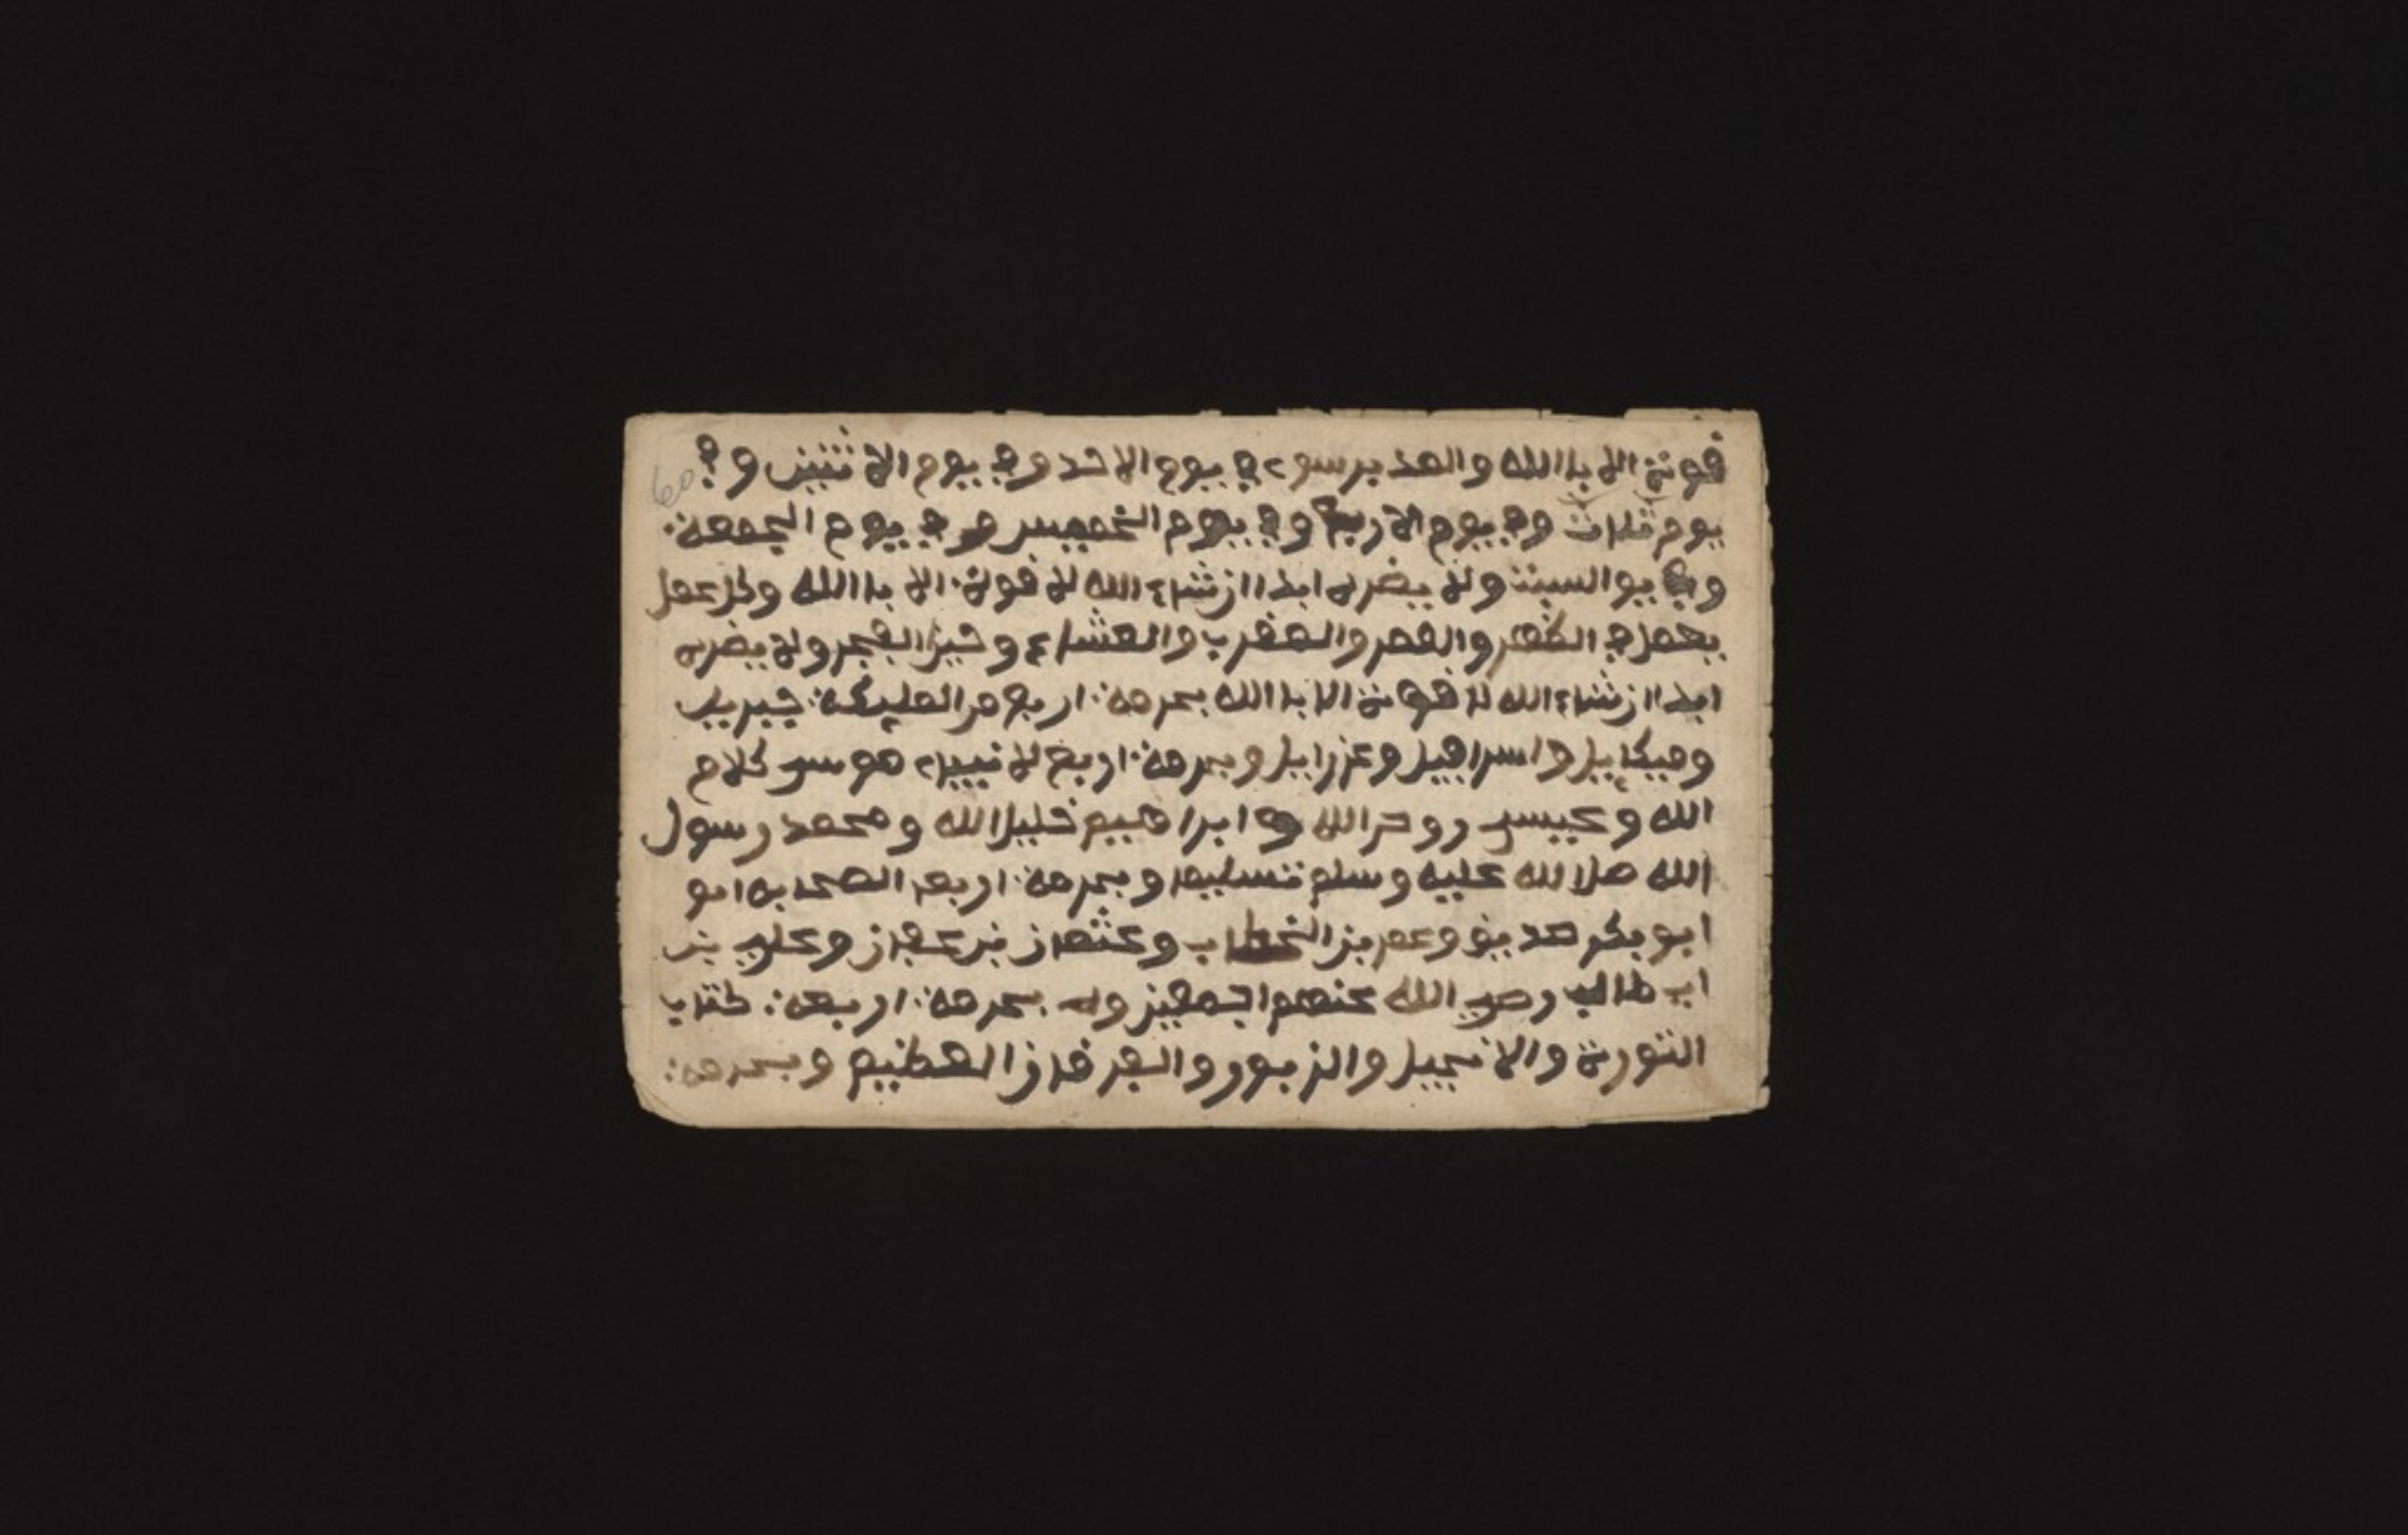 قوة الا بالله والعد برسوء في يوم الاحد وفي يوم الاثنين وفي
يوم ثلاث وفي يوم الاربع وفي يوم الخميس وفي يوم الجمعة
وفي يوا السبت ولا يضره ابدا ان شاء الله لا قوة الا باالله وكل عمل
يعمل في الظهر والعصر والمغرب والعشاء وحين الفجر ولا يضره
ابدا ان شاء الله لا قوة الا باالله بحرمة اربع من المليكة جبريل
وميكاييل واسرافيل وعزرايل وبحرمة اربع لانبياء موسى كلام
الله وعيسى روح الله و ابراهيم خليل الله ومحمد رسول
الله صلا لله عليه وسلم تسليما وبحرمة اربعه الصحابه ابو
ابو بكر صديق وعمر بن الخطاب وعثمان بن عفان وعلي بن
اب طالب رضي الله عنهم اجمعين بحرمة اربعة كتاب
التورة والانجيل والزبور والفرقان العظيم وبحرمة
60